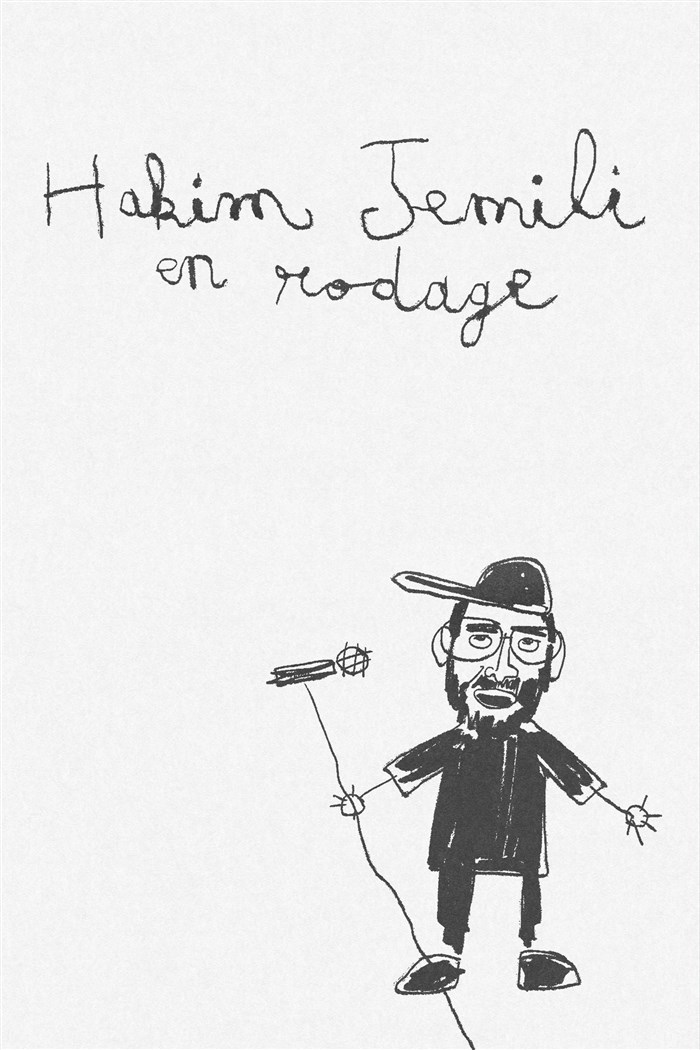 Hakim Jemili
en rodage